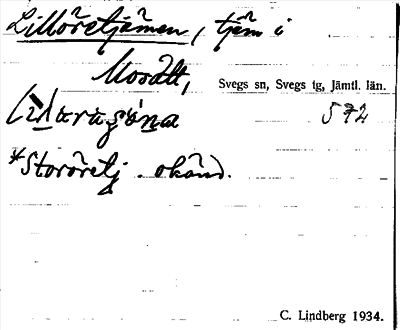 Lillöretjärnen, tjärn i
Mosätt,
Svegs sn, Svegs tg, Jämtl. län.
572
*Storöretj. okänd.
C. Lindberg 1934.